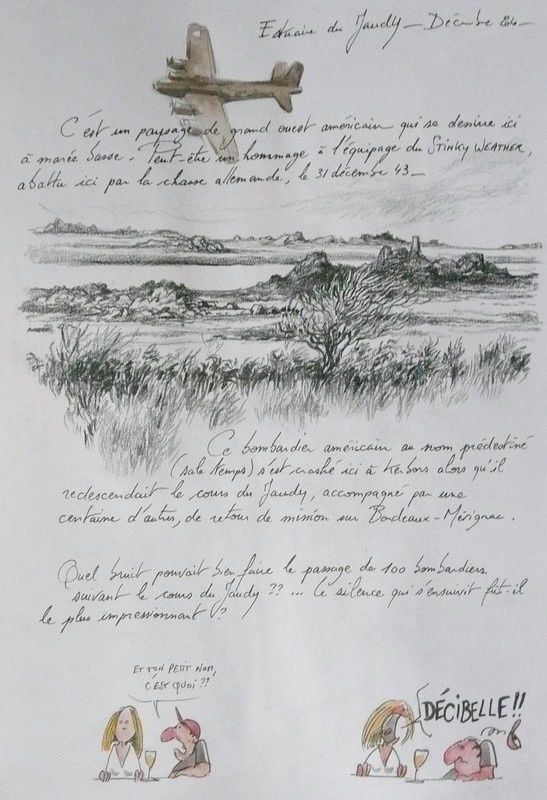 Estuaire du Jaudy — Décembre
C'est un paysage de grand ouest américain qui se dessine ici
à marée basse. Peut-être un hommage à l'équipage du STINKY WEATHER,
abattu ici par la chasse allemande, le 31 décembre 43 —
Ce bombardier américain au nom prédestiné
(sale temps) s'est crashé ici à Kerbors alors qu'il
redescendait le cours du Jaudy, accompagné par une
centaine d'autres, de retour de mission sur Bordeaux-Mérignac.
Quel bruit pouvait bien faire le passage de 100 bombardiers
suivant le cours du Jaudy ?? ... Le silence qui s'ensuivit fut-il
le plus impressionnant ?
ET TON PETIT NOM,
C'EST QUOI ??
DÉCIBELLE !!